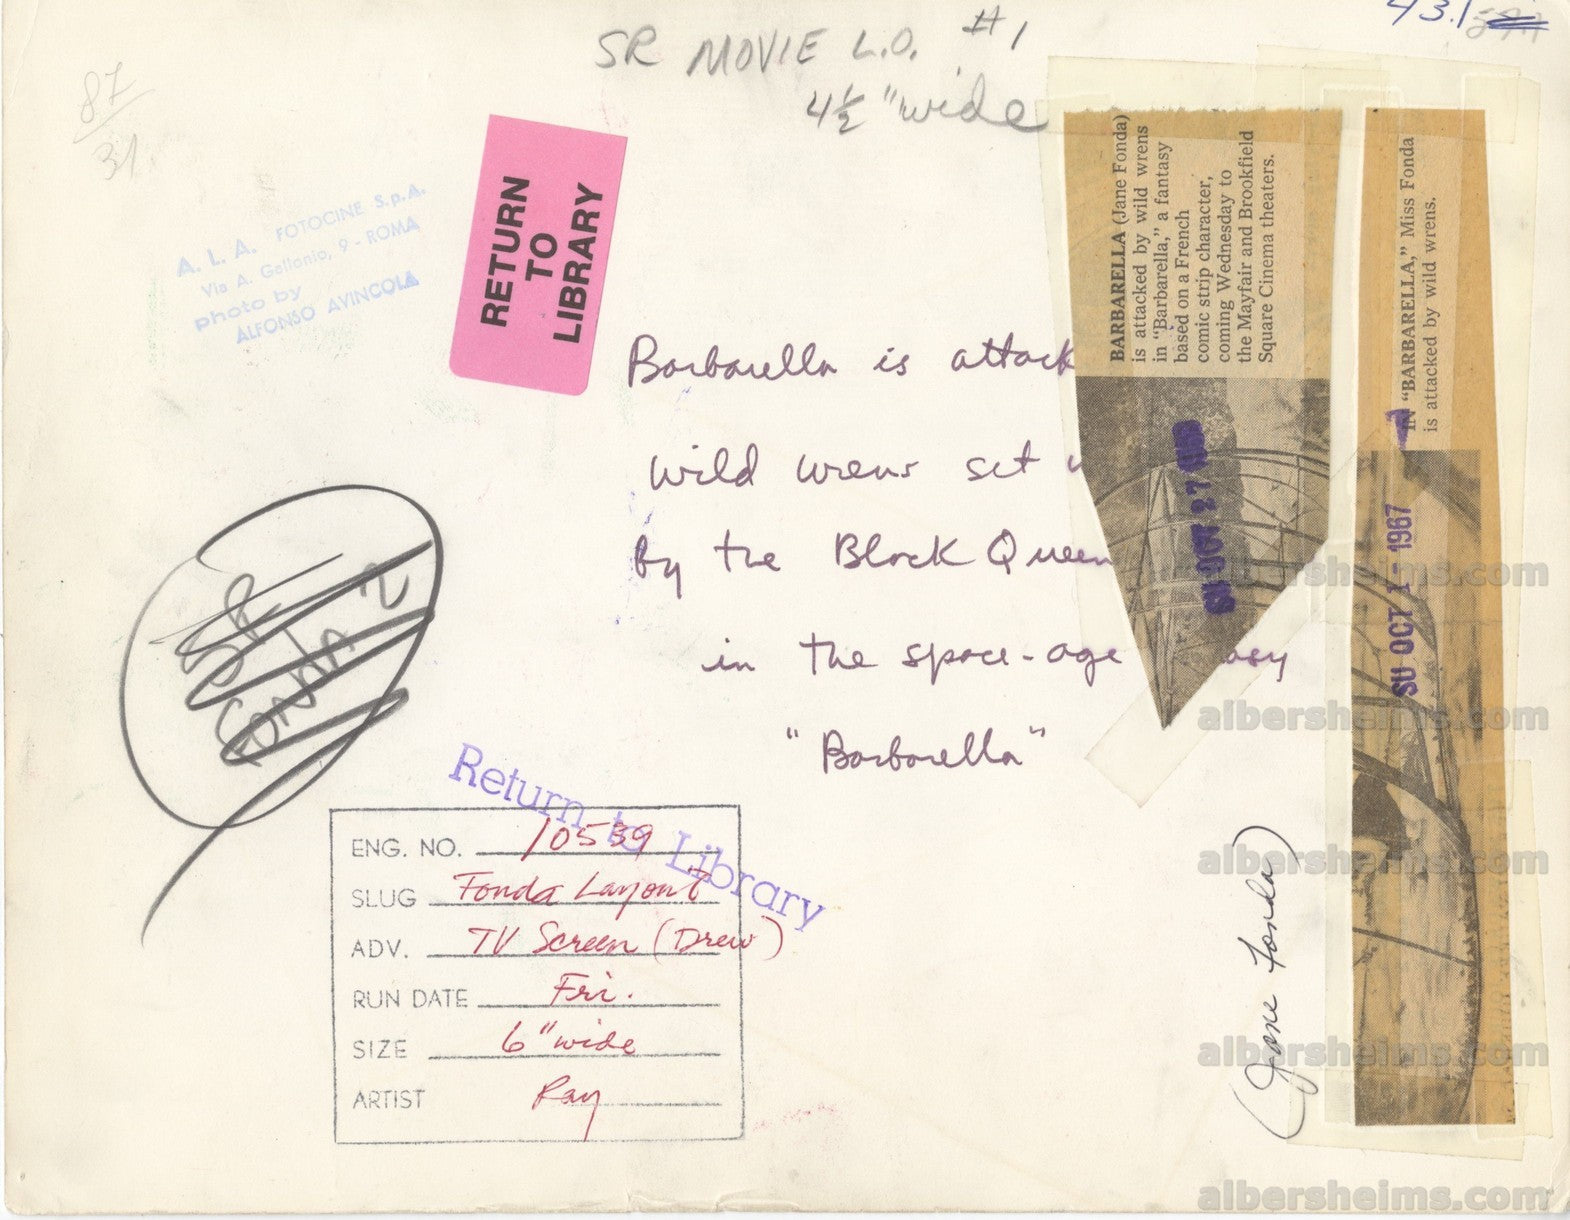 43.1
SR MOVIE L.O. #1
4½" wide
87
31
RETURN
TO
LIBRARY
A. L. A. FOTOCINE S.p.A.
Via A. Gallonio, 9 - ROMA
photo by
ALFONSO AVINCOLA
BARBARELLA (Jane Fonda)
is attacked by wild wrens
in "Barbarella," a fantasy
based on a French
comic strip character,
coming Wednesday to
the Mayfair and Brookfield
Square Cinema theaters.
SU OCT 27 1968
IN "BARBARELLA," Miss Fonda
is attacked by wild wrens.
SU OCT 1 - 1967
Barbarella is attack
wild wrens set
by the Black Queen
in the space-age asy
"Barbarella"
Fonda 2
Return to Library
ENG. NO. 10539
SLUG Fonda Layout
ADV. TV Screen (Drew)
RUN DATE Fri.
SIZE 6" wide
ARTIST Ray
(Jane Fonda)
albersheims.com
albersheims.com
albersheims.com
albersheims.com
albersheims.com